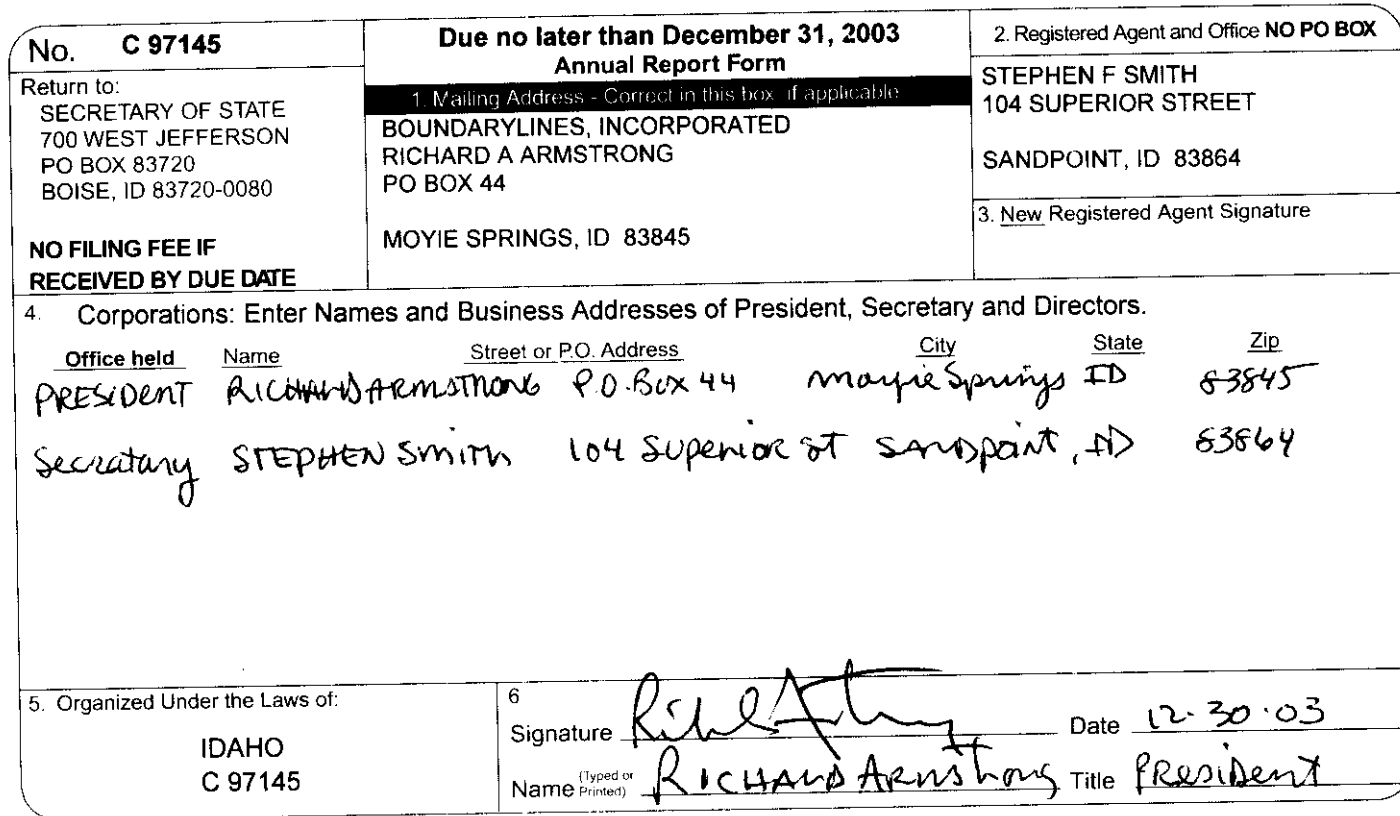 No. C 97145
Return to:
SECRETARY OF STATE
700 WEST JEFFERSON
PO BOX 83720
BOISE, ID 83720-0080
NO FILING FEE IF
RECEIVED BY DUE DATE
Due no later than December 31, 2003
Annual Report Form
1. Mailing Address - Correct in this box if applicable
BOUNDARYLINES, INCORPORATED
RICHARD A ARMSTRONG
PO BOX 44
MOYIE SPRINGS, ID 83845
2. Registered Agent and Office NO PO BOX
STEPHEN F SMITH
104 SUPERIOR STREET
SANDPOINT, ID 83864
3. New Registered Agent Signature
4. Corporations: Enter Names and Business Addresses of President, Secretary and Directors.
Office held Name Street or P.O. Address City State Zip
PRESIDENT RICHARD ARMSTRONG P.O. Box 44 Moyie Springs ID 83845
Secratary STEPHEN SMITH 104 Superior St SANDpoint, ID 83864
5. Organized Under the Laws of:
IDAHO
C 97145
6
Signature Date 12-30-03
Name (Typed or Printed) RICHARD ARMSTRONG Title PRESIDENT